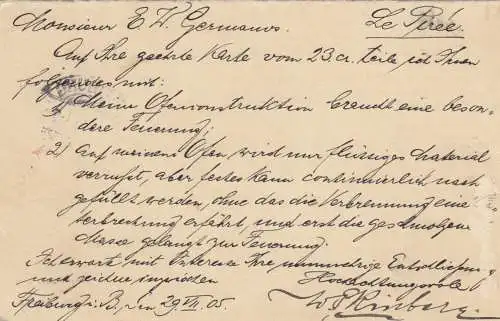 Monsieur E. W. Germanos. Le Pirée.
Auf Ihre geehrte Karte vom 23. cr. teile ich Ihnen
folgendes mit:
1) Meine Ofenconstruktion braucht eine beson-
dere Feuerung;
2) auf meinem Ofen wird nur flüssiges Material
aber festes kann continuierlich nach
gefüllt werden, ohne das die Verbrennung eine
terbrechung erfährt, und erst die geschmolzene
Masse gelangt zur Feuerung.
Ich erwarte mit Interesse Ihre Entschließung
und zeichne inzwischen Hochachtungsvoll
Freiburg i. B., den 29. VI. 05.